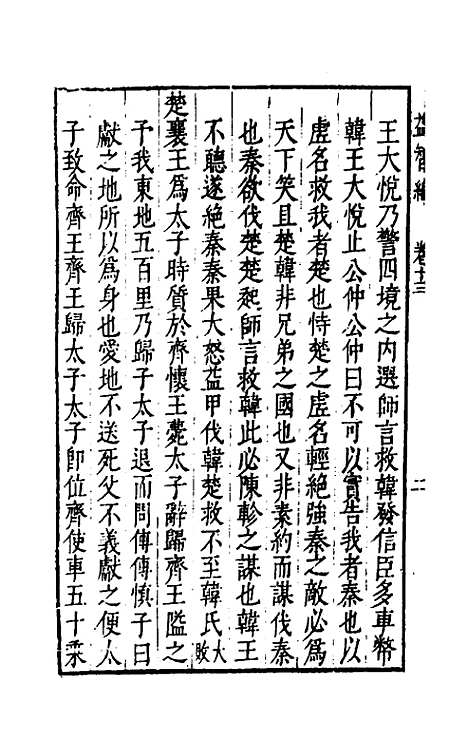 益智編 卷十三 二
王大悅乃警四境之內選師言救韓發信臣多車幣
韓王大悅止公仲公仲曰不可以實告我者秦也以
虛名救我者楚也恃楚之虛名輕絕強秦之敵必為
天下笑且楚韓非兄弟之國也又非素約而謀伐秦
也秦欲伐楚楚起師言救韓此必陳軫之謀也韓王
不聽遂絕秦秦果大怒益甲伐韓楚救不至韓氏大敗
楚襄王為太子時質於齊懷王薨太子辭歸齊王隘之
予我東地五百里乃歸子太子退而問傅傅慎子曰
獻之地所以為身也愛地不送死父不義獻之便人
子致命齊王齊王歸太子太子即位齊使車五十乘